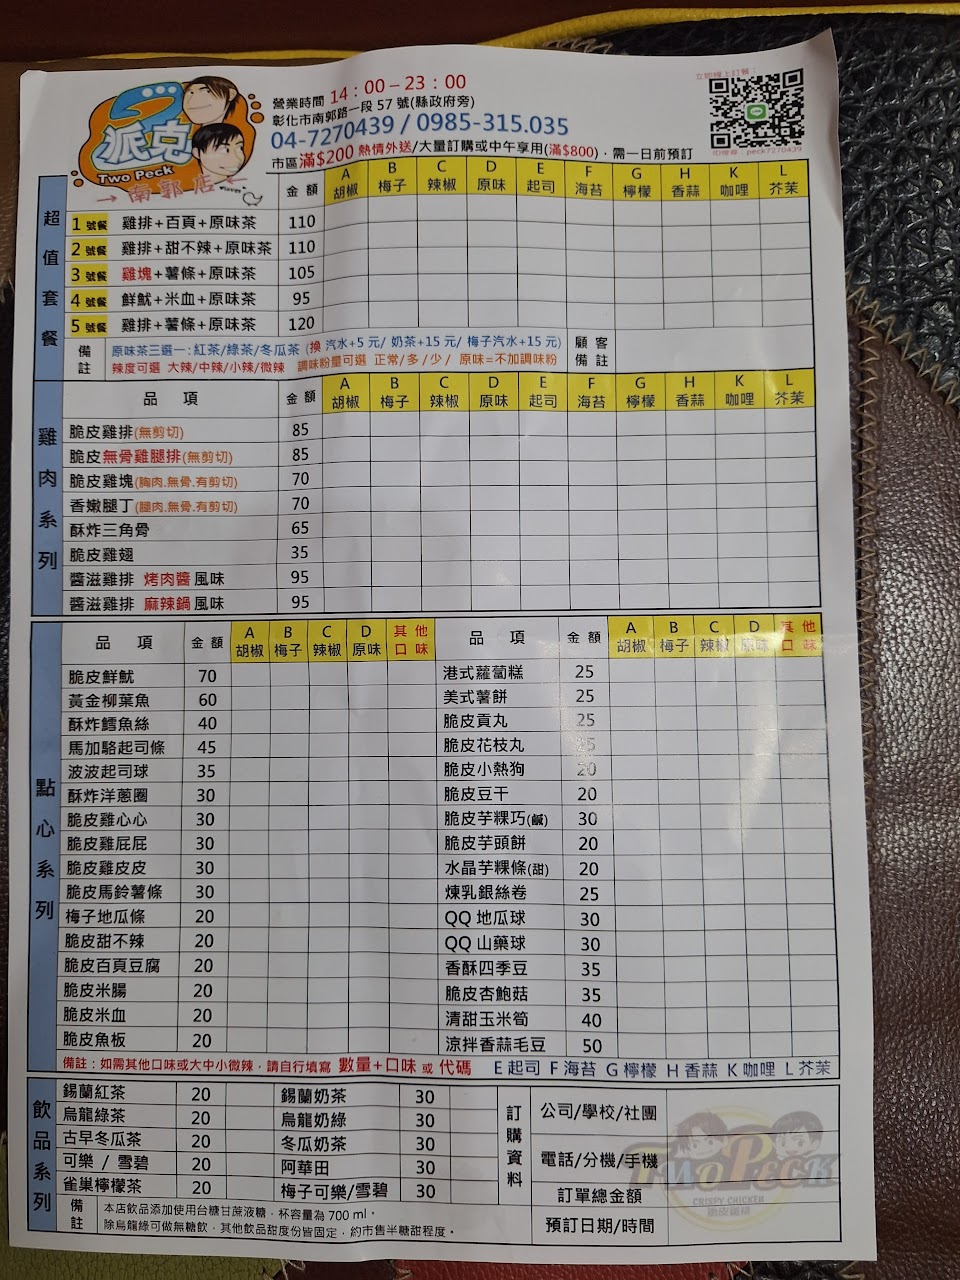 派克
Two Peck
南郭店
營業時間 14：00－23：00
彰化市南郭路一段 57 號(縣政府旁)
04-7270439 / 0985-315.035
市區滿$200 熱情外送/大量訂購或中午享用(滿$800)，需一日前預訂
立即線上訂餐：
ID搜尋：peck7270439
超值套餐
金額 A胡椒 B梅子 C辣椒 D原味 E起司 F海苔 G檸檬 H香蒜 K咖哩 L芥茉
1 號餐 雞排+百頁+原味茶 110
2 號餐 雞排+甜不辣+原味茶 110
3 號餐 雞塊+薯條+原味茶 105
4 號餐 鮮魷+米血+原味茶 95
5 號餐 雞排+薯條+原味茶 120
備註
原味茶三選一:紅茶/綠茶/冬瓜茶 (換 汽水+5 元/ 奶茶+15 元/ 梅子汽水+15 元)
辣度可選 大辣/中辣/小辣/微辣 調味粉量可選 正常/多/少/ 原味=不加調味粉
顧客備註
雞肉系列
品項 金額 A胡椒 B梅子 C辣椒 D原味 E起司 F海苔 G檸檬 H香蒜 K咖哩 L芥茉
脆皮雞排(無剪切) 85
脆皮無骨雞腿排(無剪切) 85
脆皮雞塊(胸肉.無骨.有剪切) 70
香嫩腿丁(腿肉.無骨.有剪切) 70
酥炸三角骨 65
脆皮雞翅 35
醬滋雞排 烤肉醬風味 95
醬滋雞排 麻辣鍋風味 95
點心系列
品項 金額 A胡椒 B梅子 C辣椒 D原味 其他口味 品項 金額 A胡椒 B梅子 C辣椒 D原味 其他口味
脆皮鮮魷 70 港式蘿蔔糕 25
黃金柳葉魚 60 美式薯餅 25
酥炸鱈魚絲 40 脆皮貢丸 25
馬加駱起司條 45 脆皮花枝丸 25
波波起司球 35 脆皮小熱狗 20
酥炸洋蔥圈 30 脆皮豆干 20
脆皮雞心心 30 脆皮芋粿巧(鹹) 30
脆皮雞屁屁 30 脆皮芋頭餅 20
脆皮雞皮皮 30 水晶芋粿條(甜) 20
脆皮馬鈴薯條 30 煉乳銀絲卷 25
梅子地瓜條 20 QQ 地瓜球 30
脆皮甜不辣 20 QQ 山藥球 30
脆皮百頁豆腐 20 香酥四季豆 35
脆皮米腸 20 脆皮杏鮑菇 35
脆皮米血 20 清甜玉米筍 40
脆皮魚板 20 涼拌香蒜毛豆 50
備註：如需其他口味或大中小微辣，請自行填寫 數量+口味 或 代碼 E 起司 F 海苔 G 檸檬 H 香蒜 K 咖哩 L 芥茉
飲品系列
錫蘭紅茶 20 錫蘭奶茶 30
烏龍綠茶 20 烏龍奶綠 30
古早冬瓜茶 20 冬瓜奶茶 30
可樂 / 雪碧 20 阿華田 30
雀巢檸檬茶 20 梅子可樂/雪碧 30
備註
本店飲品添加使用台糖甘蔗液糖，杯容量為 700 ml。
除烏龍綠可做無糖飲，其他飲品甜度份皆固定，約市售半糖甜程度。
訂購資料
公司/學校/社團
電話/分機/手機
訂單總金額
預訂日期/時間
TWO PECK
CRISPY CHICKEN
脆皮雞排